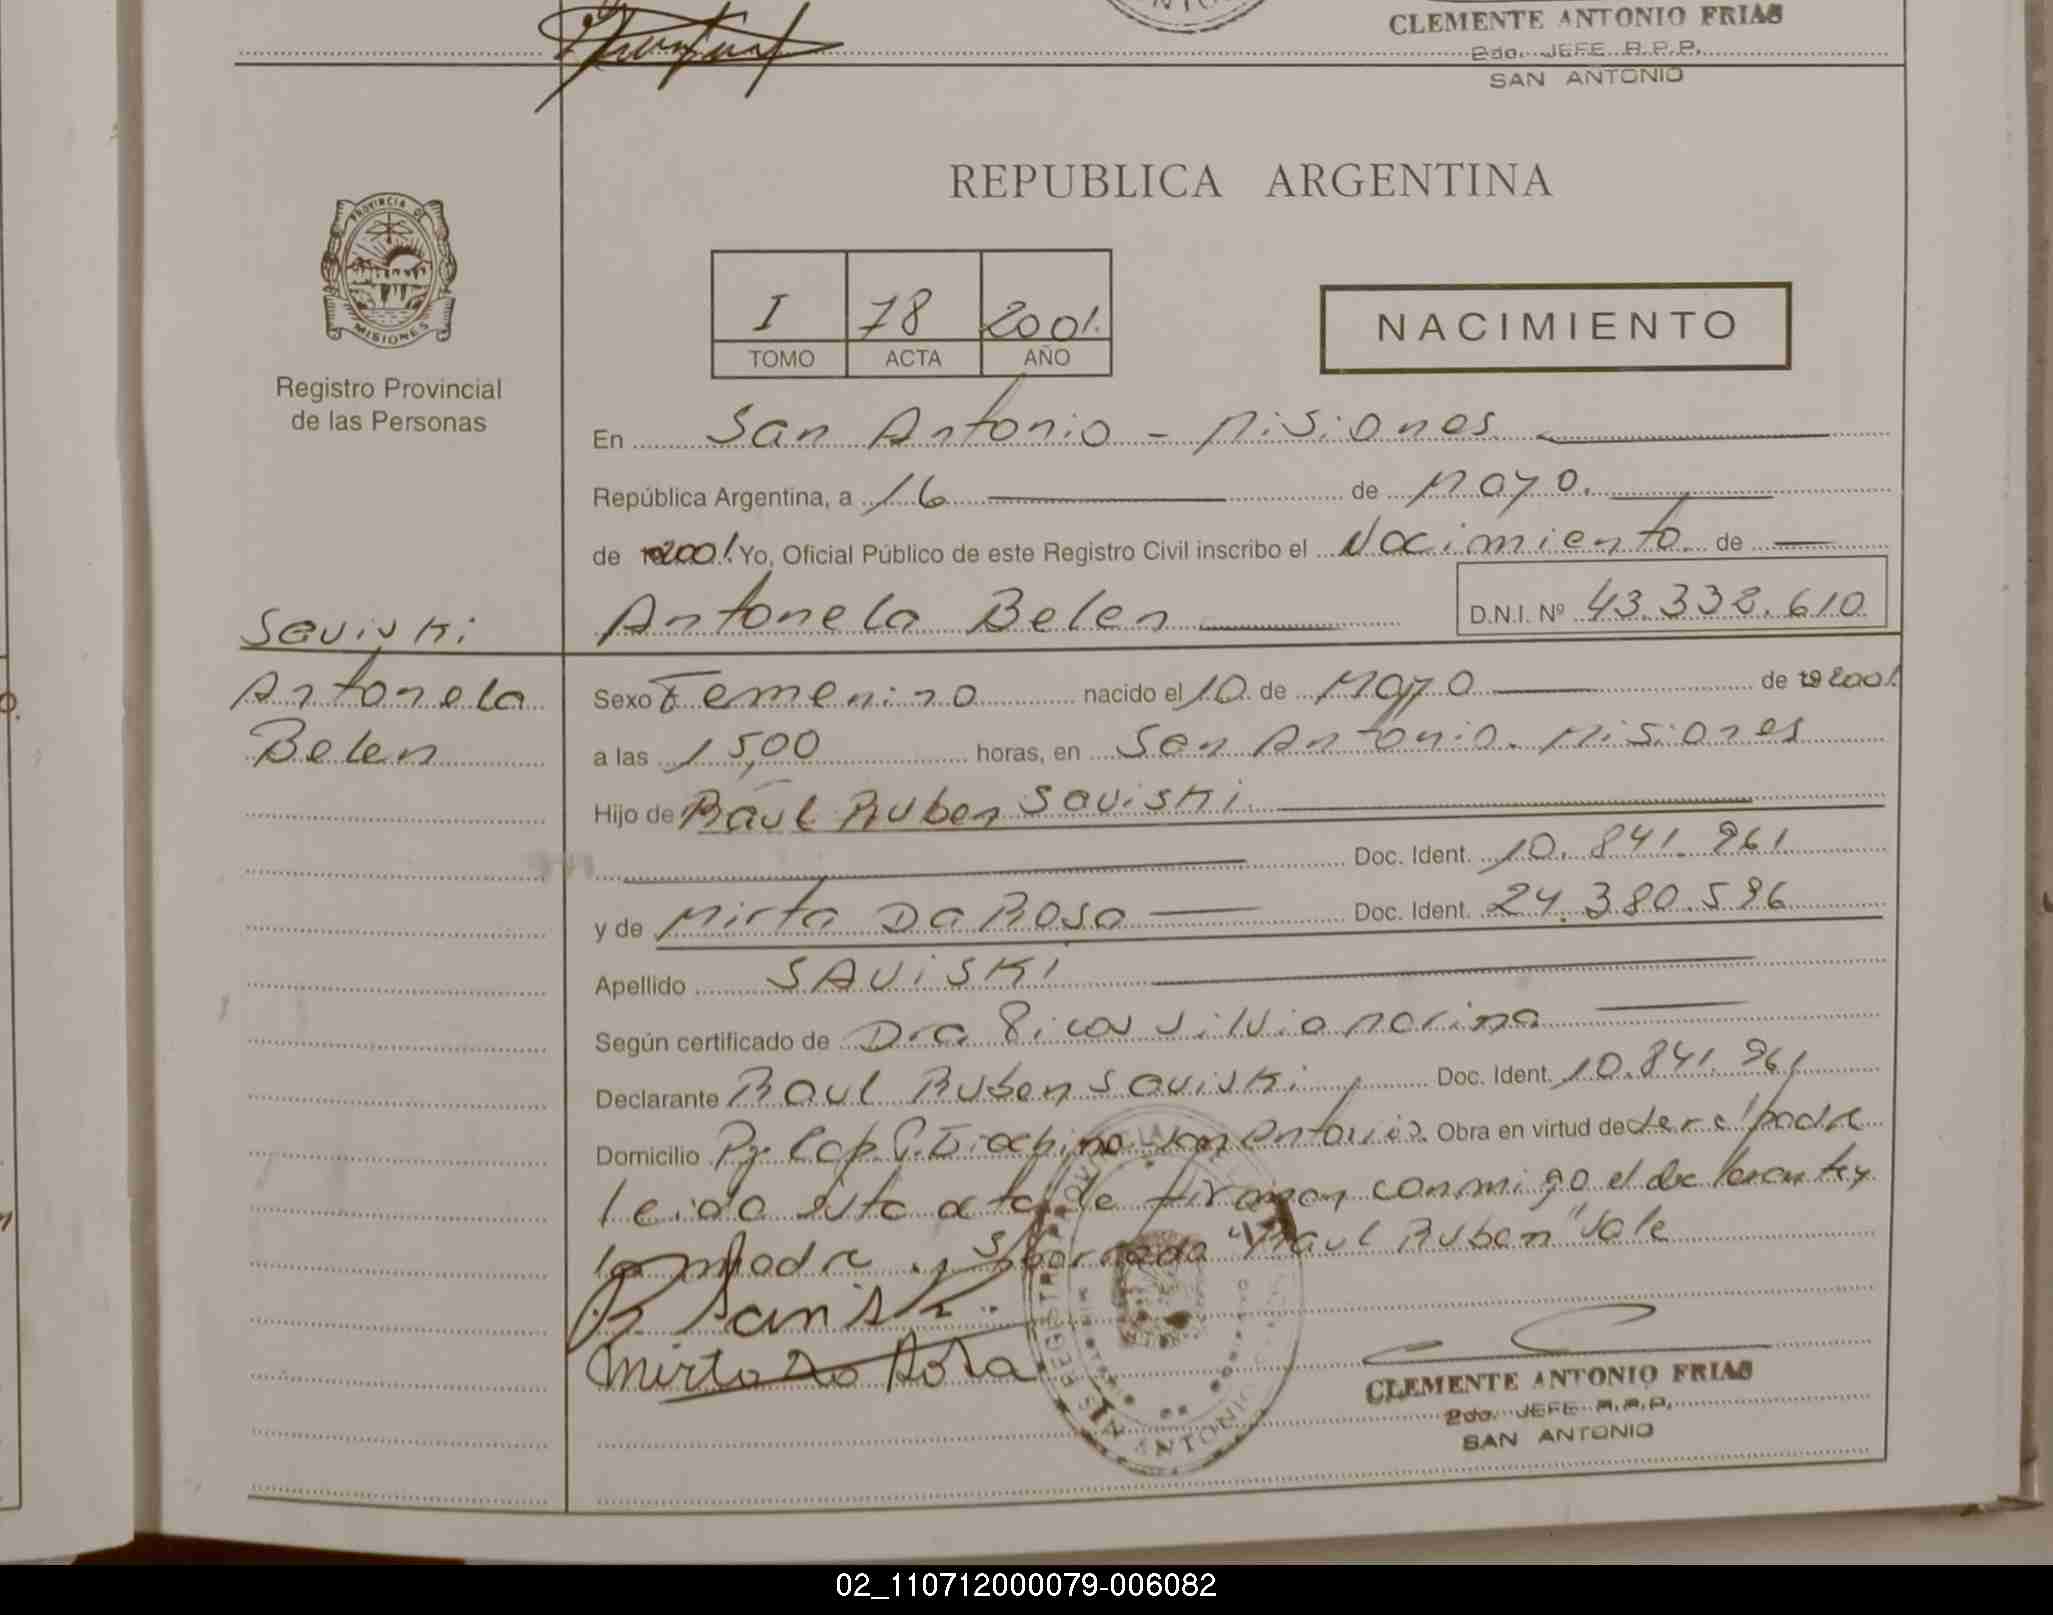 CLEMENTE ANTONIO FRIAS
2do. JEFE R.P.P.
SAN ANTONIO
PROVINCIA DE
MISIONES
Registro Provincial
de las Personas
REPUBLICA ARGENTINA
I 78 2001.
TOMO ACTA AÑO
NACIMIENTO
En San Antonio - Misiones
República Argentina, a 16 de Mayo.
de 2001. Yo, Oficial Público de este Registro Civil inscribo el Nacimiento de
Antonela Belen D.N.I. Nº 43.332.610
Saviski
Antonela
Belen
Sexo Femenino nacido el 10 de Mayo de 2001.
a las 15,00 horas, en San Antonio. Misiones
Hijo de Raúl Ruben Saviski
Doc. Ident. 10.841.961
y de Mirta Da Rosa Doc. Ident. 24.380.596
Apellido SAVISKI
Según certificado de Dra Silvia
Declarante Raul Ruben Saviski Doc. Ident. 10.841.961
Domicilio San Antonio. Obra en virtud de ser el padre
leida esta acta firman conmigo el declarante y
la madre. Sobornada "Raul Ruben" Vale
Mirta Da Rosa
CLEMENTE ANTONIO FRIAS
2do. JEFE R.P.P.
SAN ANTONIO
02_110712000079-006082